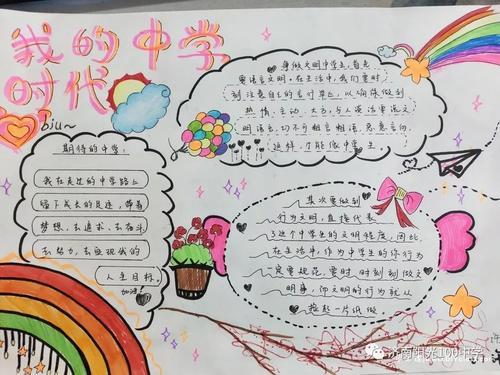 我的中学
时代
Biu~
期待的中学:
我在走过的中学路上
留下成长的足迹,带着
梦想,去追求、去奋斗
去努力,去实现我的
人生目标。
加油!
争做文明中学生,首先
要语言文明。在生活中,我们要时
刻注意自己的言行举止,以确保做到
热情、主动、大方,与人谈话常语文
明语言,切不可粗言粗语,恶意言向
这样,才能做中学生。
其次要做到
行为文明,直接代表
了这个中学生的文明程度,因此
在生活中,作为中学生的你行为
一定要规范,要时时刻刻做文
明事,你文明的行为就从
捡起一片纸做
济南阳光100中学